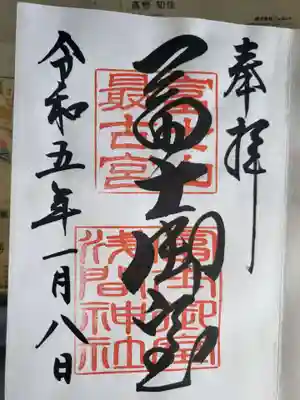 奉拝
冨士御室
富士山
最古宮
冨士御室
浅間神社
令和五年一月八日